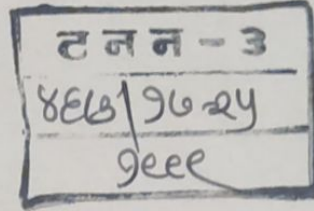 ट न न - ३
४६७/१७-२५
१९९९